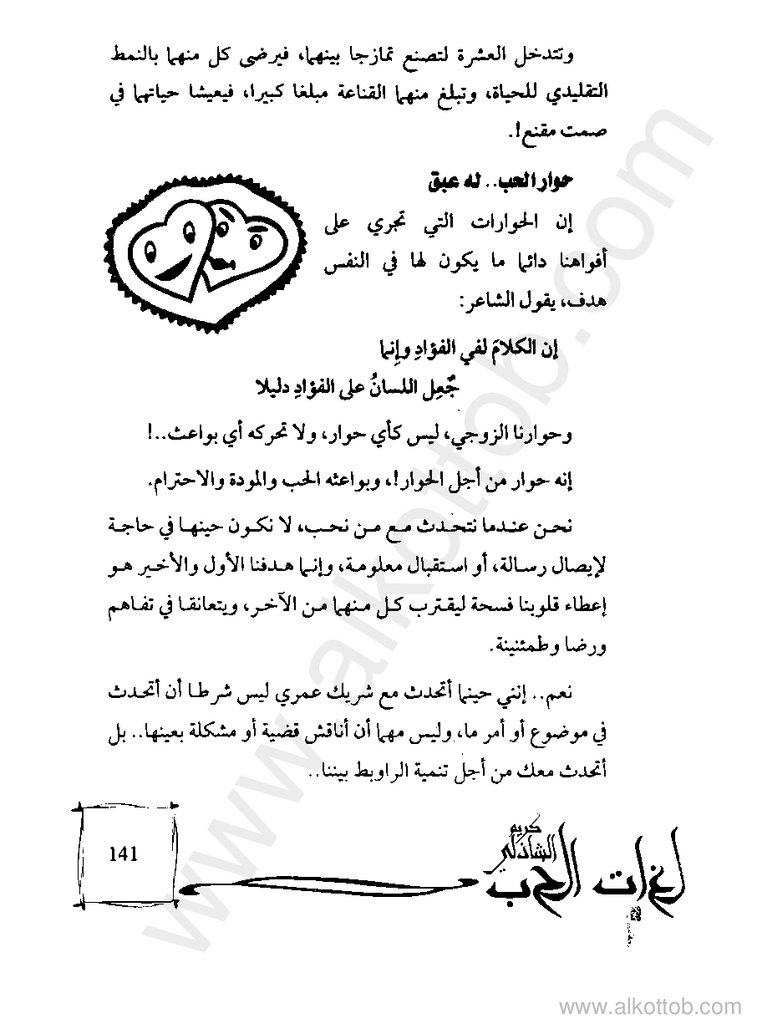 وتتدخل العشرة لتصنع تمازجا بينهما، فيرضى كل منهما بالنمط
التقليدي للحياة، وتبلغ منهما القناعة مبلغا كبيرا، فيعيشا حياتهما في
صمت مقنع!.
حوار الحب.. له عبق
إن الحوارات التي تجري على
أفواهنا دائما ما يكون لها في النفس
هدف، يقول الشاعر:
إن الكلامَ لفي الفؤادِ وإنما
جُعِل اللسانُ على الفؤادِ دليلا
وحوارنا الزوجي، ليس كأي حوار، ولا تحركه أي بواعث..!
إنه حوار من أجل الحوار!، وبواعثه الحب والمودة والاحترام.
نحن عندما نتحدث مع من نحب، لا نكون حينها في حاجة
لإيصال رسالة، أو استقبال معلومة، وإنما هدفنا الأول والأخير هو
إعطاء قلوبنا فسحة ليقترب كل منهما من الآخر، ويتعانقا في تفاهم
ورضا وطمئنينة.
نعم.. إنني حينما أتحدث مع شريك عمري ليس شرطا أن أتحدث
في موضوع أو أمر ما، وليس مهما أن أناقش قضية أو مشكلة بعينها.. بل
أتحدث معك من أجل تنمية الراوبط بيننا..
كريم
الشاذلي
لغات الحب
141
www.alkottob.com
www.alkottob.com